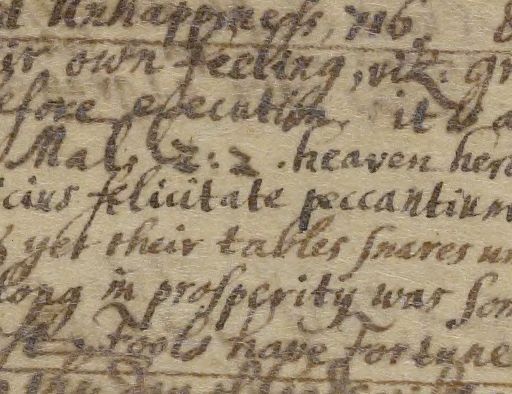 Unhappiness, 716.
own feeling, viz.
execution it is a
Mal. 2: 2. heaven here
felicitate peccantium
yet their tables snares
long in prosperity was som
Fools have Fortune